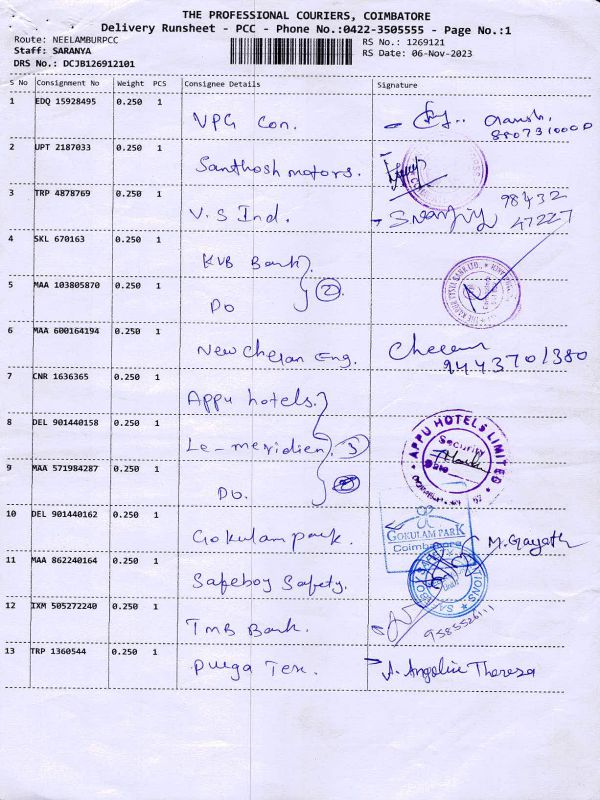 THE PROFESSIONAL COURIERS, COIMBATORE
Delivery Runsheet - PCC - Phone No.:0422-3505555 - Page No.:1
Route: NEELAMBURPCC RS No.: 1269121
Staff: SARANYA RS Date: 06-Nov-2023
DRS No.: DCJB126912101
S No Consignment No Weight PCS Consignee Details Signature
1 EDQ 15928495 0.250 1
VPG Con.
2 UPT 2187033 0.250 1
Santhosh motors.
3 TRP 4878769 0.250 1 98432
V.S Ind. 47227
4 SKL 670163 0.250 1
KVB Bank
5 MAA 103805870 0.250 1 2
Do
6 MAA 600164194 0.250 1
New Cheran Eng. 9443701380
7 CNR 1636365 0.250 1
Appu hotels.
8 DEL 901440158 0.250 1 APPU HOTELS LIMITED
Le-meridien. 3 Security
9 MAA 571984287 0.250 1
Do.
10 DEL 901440162 0.250 1 GOKULAM PARK
Gokulam park. Coimbatore M. Gayath
11 MAA 862240164 0.250 1
Safeboy Safety.
12 IXM 505272240 0.250 1
TMB Bank. 9585526111
13 TRP 1360544 0.250 1 A. Angeline Theresa
Tex.